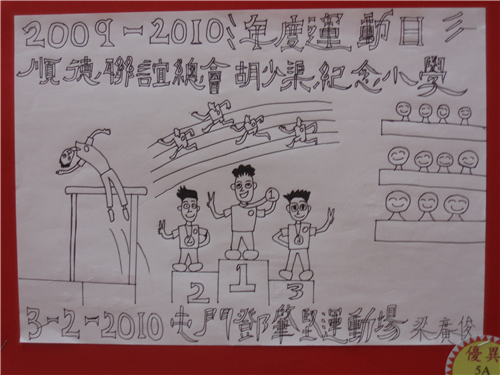 2009-2010年度運動日
順德聯誼總會胡少渠紀念小學
1
1
2
3
3-2-2010 屯門鄧肇堅運動場 梁廣俊
優異
5A